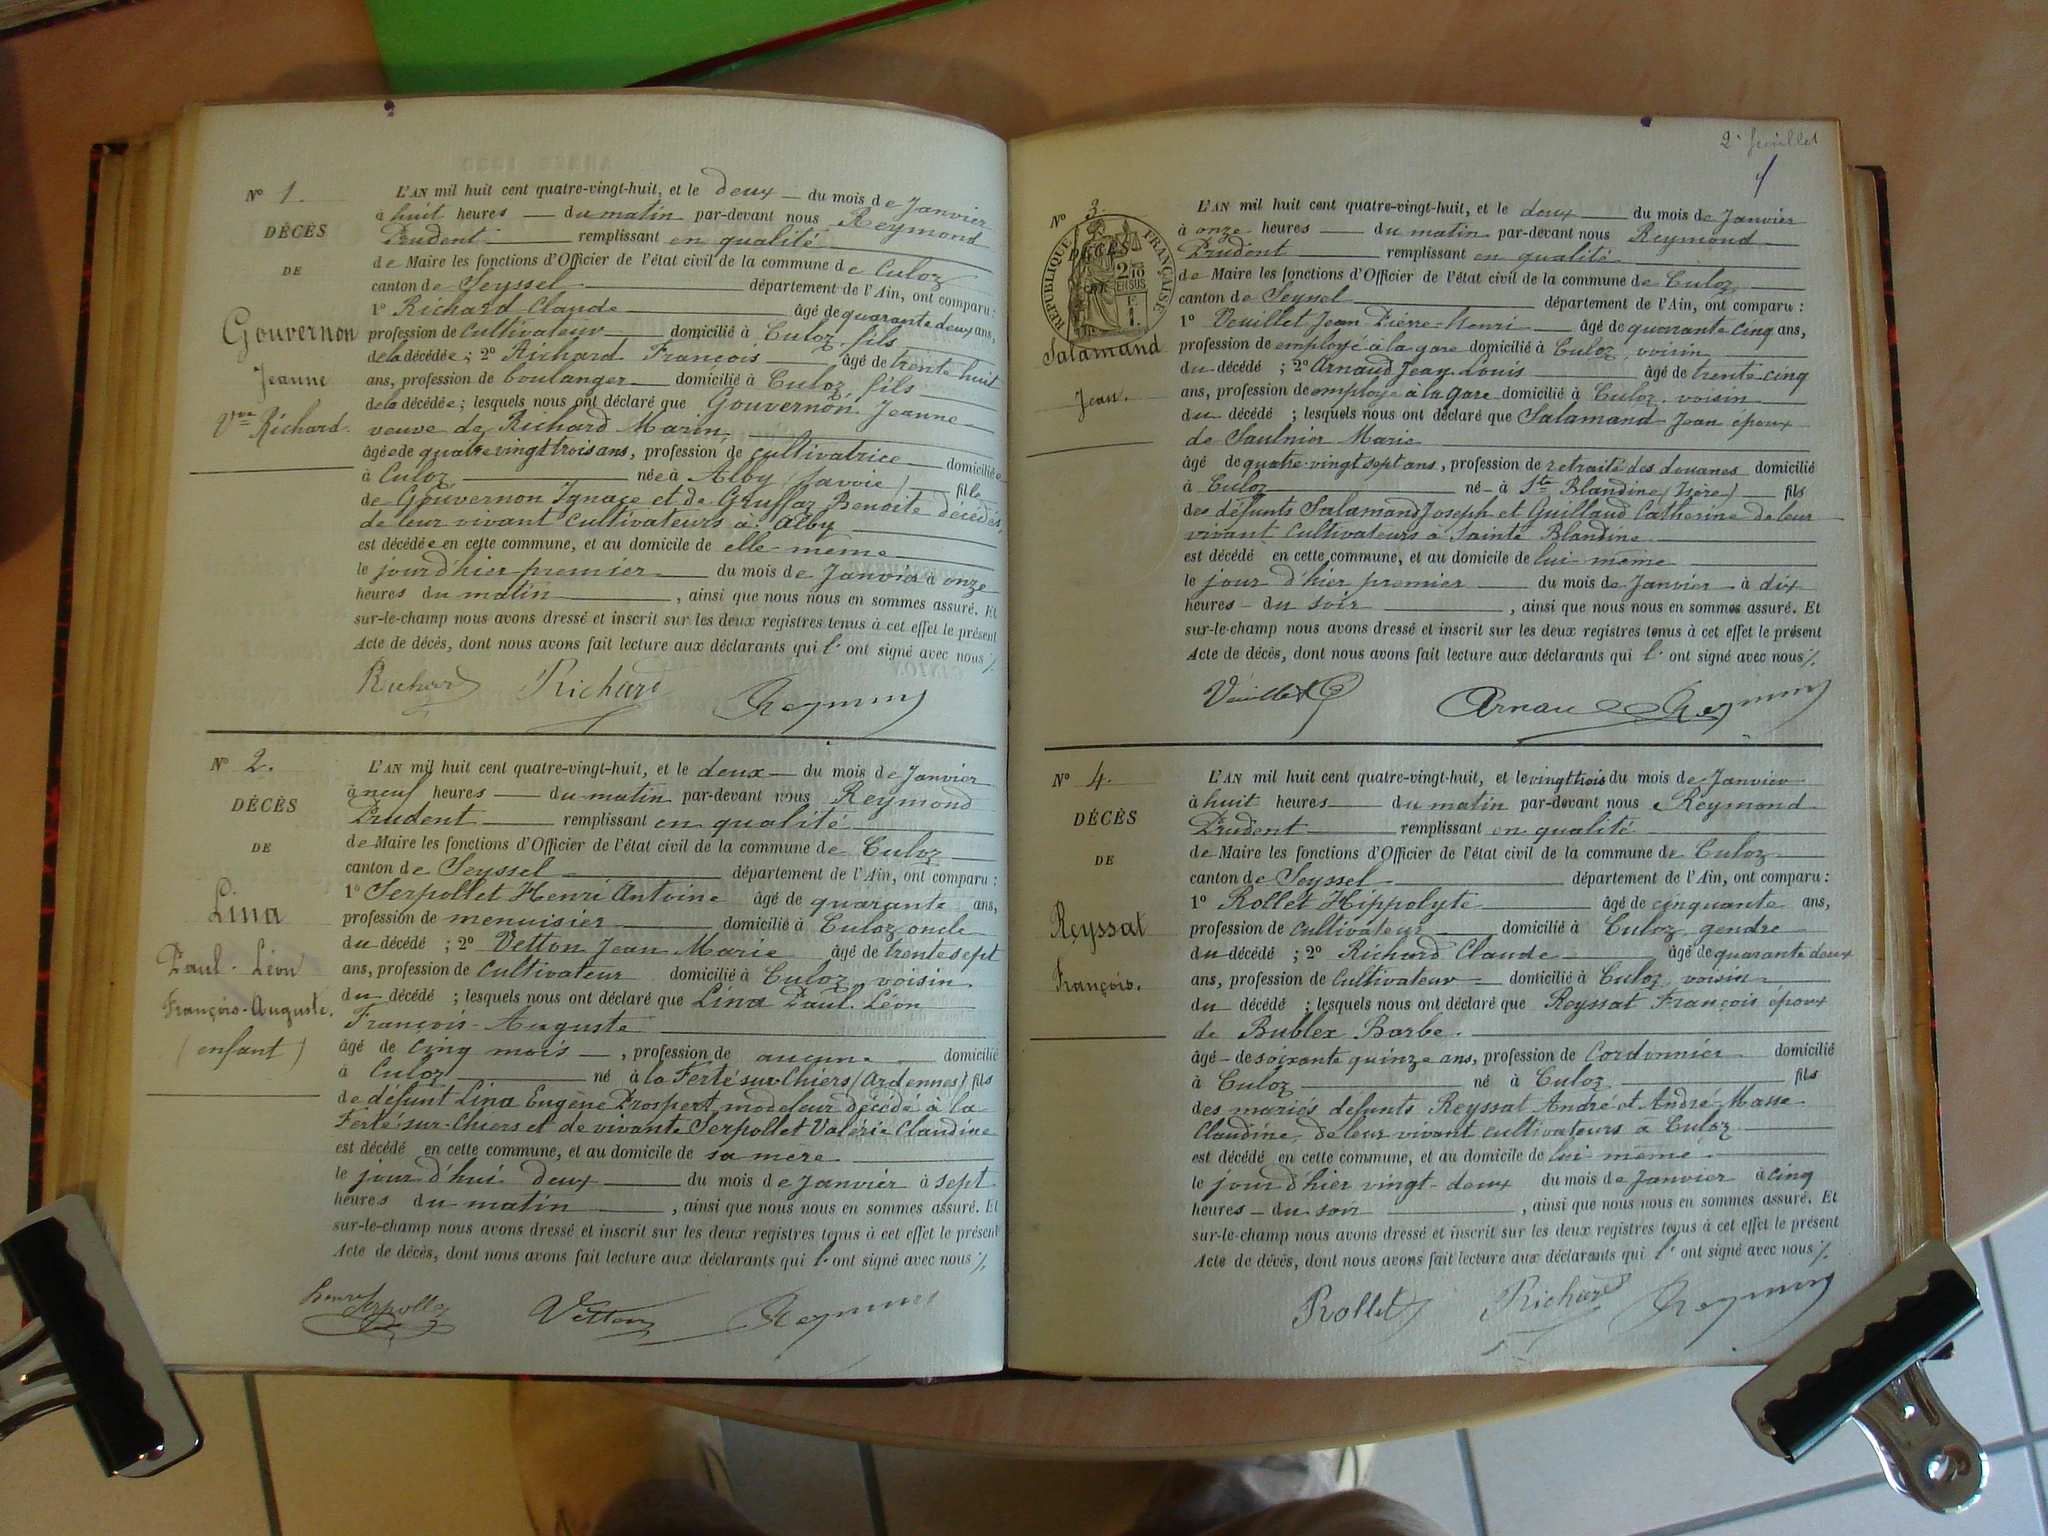 N° 1.
DÉCÈS
DE
Gouvernon
Jeanne
Vve Richard.
L'AN mil huit cent quatre-vingt-huit, et le deux du mois de Janvier
à huit heures du matin par-devant nous Reymond
Prudent remplissant en qualité
de Maire les fonctions d'Officier de l'état civil de la commune de Culoz
canton de Seyssel département de l'Ain, ont comparu :
1° Richard Claude âgé de quarante deux ans,
profession de cultivateur domicilié à Culoz, fils
de la décédée ; 2° Richard François âgé de trente huit
ans, profession de boulanger domicilié à Culoz, fils
de la décédée ; lesquels nous ont déclaré que Gouvernon Jeanne
veuve de Richard Marin,
âgée de quatre vingt trois ans, profession de cultivatrice domiciliée
à Culoz née à Alby (Savoie) fille
de Gouvernon Ignace et de Gruffaz Benoite décédés,
de leur vivant cultivateurs à Alby
est décédée en cette commune, et au domicile de elle même
le jour d'hier premier du mois de Janvier à onze
heures du matin , ainsi que nous nous en sommes assuré. Et
sur-le-champ nous avons dressé et inscrit sur les deux registres tenus à cet effet le présent
Acte de décès, dont nous avons fait lecture aux déclarants qui l' ont signé avec nous %.
Richard Richard Reymond
N° 2.
DÉCÈS
DE
Lina
Paul-Léon
François-Auguste.
(enfant)
L'AN mil huit cent quatre-vingt-huit, et le deux du mois de Janvier
à neuf heures du matin par-devant nous Reymond
Prudent remplissant en qualité
de Maire les fonctions d'Officier de l'état civil de la commune de Culoz
canton de Seyssel département de l'Ain, ont comparu :
1° Serpollet Henri Antoine âgé de quarante ans,
profession de menuisier domicilié à Culoz, oncle
du décédé ; 2° Vetton Jean Marie âgé de trente sept
ans, profession de cultivateur domicilié à Culoz voisin
du décédé ; lesquels nous ont déclaré que Lina Paul Léon
François-Auguste
âgé de cinq mois , profession de aucune domicilié
à Culoz né à la Ferté sur Chiers (Ardennes) fils
de défunt Lina Eugène Prospert modeleur décédé à la
Ferté-sur-Chiers et de vivante Serpollet Valérie Claudine
est décédé en cette commune, et au domicile de sa mère
le jour d'hui deux du mois de Janvier à sept
heures du matin , ainsi que nous nous en sommes assuré. Et
sur-le-champ nous avons dressé et inscrit sur les deux registres tenus à cet effet le présent
Acte de décès, dont nous avons fait lecture aux déclarants qui l' ont signé avec nous %.
henri Serpollet Vetton Reymond
2e feuillet
N° 3.
RÉPUBLIQUE FRANÇAISE
DÉCÈS
DE
2/10 EN SUS
F.
1.
Salamand
Jean.
L'AN mil huit cent quatre-vingt-huit, et le deux du mois de Janvier
à onze heures du matin par-devant nous Reymond
Prudent remplissant en qualité
de Maire les fonctions d'Officier de l'état civil de la commune de Culoz
canton de Seyssel département de l'Ain, ont comparu :
1° Veuillet Jean Pierre-henri âgé de quarante cinq ans,
profession de employé à la gare domicilié à Culoz, voisin
du décédé ; 2° Arnaud Jean Louis âgé de trente cinq
ans, profession de employé à la gare domicilié à Culoz, voisin
du décédé ; lesquels nous ont déclaré que Salamand Jean époux
de Saulnier Marie
âgé de quatre-vingt sept ans, profession de retraité des douanes domicilié
à Culoz né à Ste Blandine (Isère) fils
des défunts Salamand Joseph et Guillaud Catherine de leur
vivant cultivateurs à Sainte Blandine
est décédé en cette commune, et au domicile de lui-même
le jour d'hier premier du mois de Janvier à dix
heures du soir , ainsi que nous nous en sommes assuré. Et
sur-le-champ nous avons dressé et inscrit sur les deux registres tenus à cet effet le présent
Acte de décès, dont nous avons fait lecture aux déclarants qui l' ont signé avec nous %.
Veuillet Arnaud Reymond
N° 4.
DÉCÈS
DE
Reyssat
François.
L'AN mil huit cent quatre-vingt-huit, et le vingt trois du mois de Janvier
à huit heures du matin par-devant nous Reymond
Prudent remplissant en qualité
de Maire les fonctions d'Officier de l'état civil de la commune de Culoz
canton de Seyssel département de l'Ain, ont comparu :
1° Rollet Hippolyte âgé de cinquante ans,
profession de cultivateur domicilié à Culoz gendre
du décédé ; 2° Richard Claude âgé de quarante deux
ans, profession de cultivateur domicilié à Culoz, voisin
du décédé ; lesquels nous ont déclaré que Reyssat François époux
de Bublex Barbe.
âgé de soixante quinze ans, profession de Cordonnier domicilié
à Culoz né à Culoz fils
des mariés défunts Reyssat André et André-Masse
Claudine, de leur vivant cultivateurs à Culoz
est décédé en cette commune, et au domicile de lui-même
le jour d'hier vingt-deux du mois de Janvier à cinq
heures du soir , ainsi que nous nous en sommes assuré. Et
sur-le-champ nous avons dressé et inscrit sur les deux registres tenus à cet effet le présent
Acte de décès, dont nous avons fait lecture aux déclarants qui l' ont signé avec nous %.
Rollet Richard Reymond